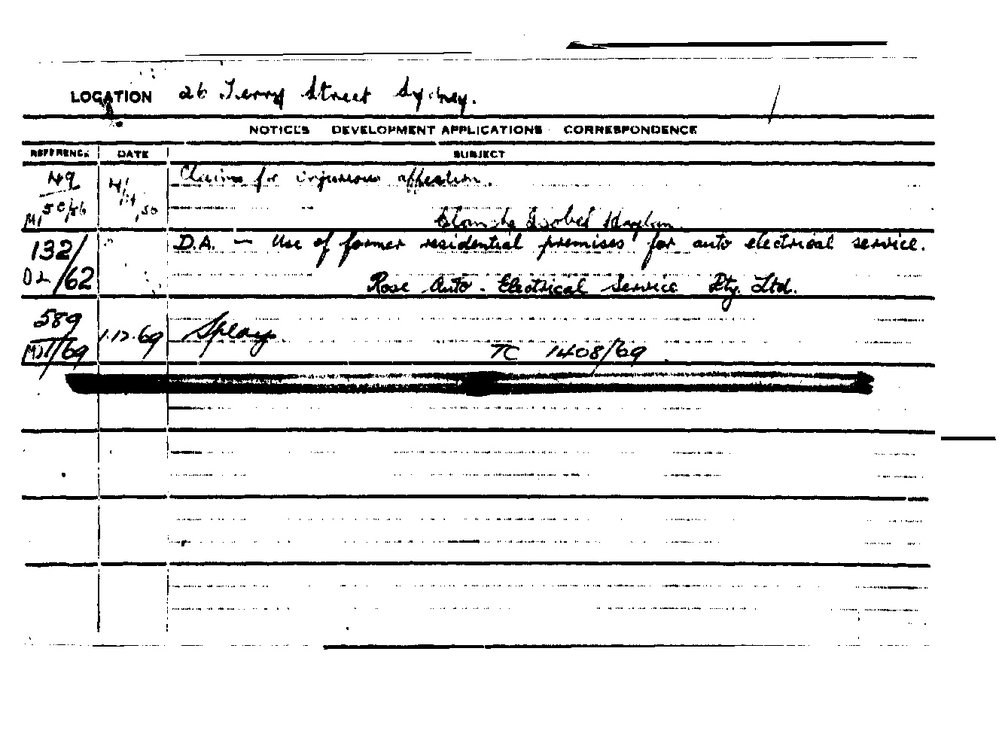 LOCATION 26 Terry Street Sydney.
NOTICES DEVELOPMENT APPLICATIONS CORRESPONDENCE
REFERENCE DATE SUBJECT
49 Claims for injurious affection.
132/ D.A. - Use of former residential premises for auto electrical service.
/62 Rose Auto-Electrical Service Pty. Ltd.
589 1.12.69
/69 TC 1408/69